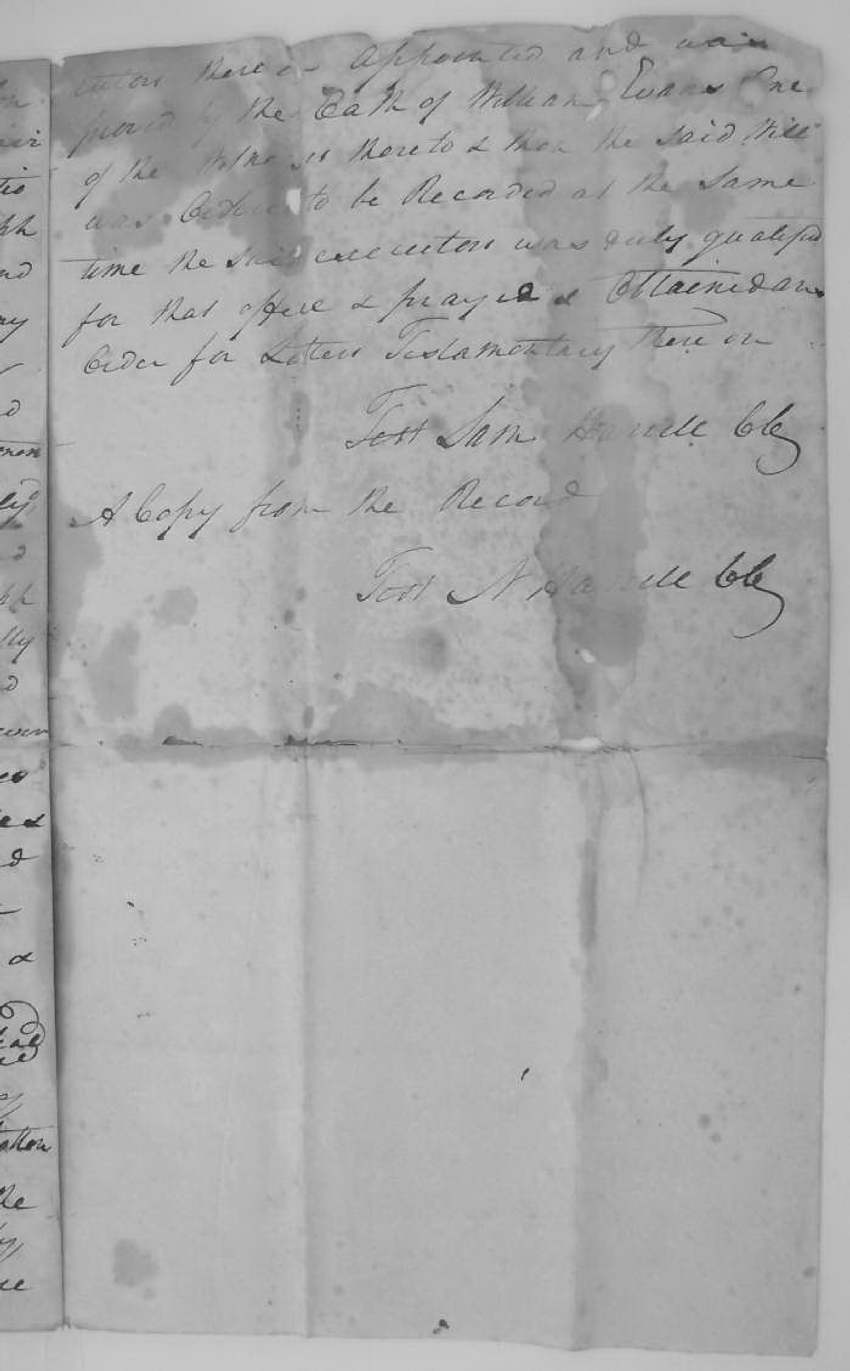 cutors therein Appointed and was
proved by the Oath of William Evans One
of the Witnesses thereto & then the said Will
was Ordered to be Recorded at the Same
time the said executors was duly qualified
for that office & prayed & Obtained an
Order for Letters Testamentary thereon
Test Sam Harrell CC
A Copy from the Record
Test N Harrell CC